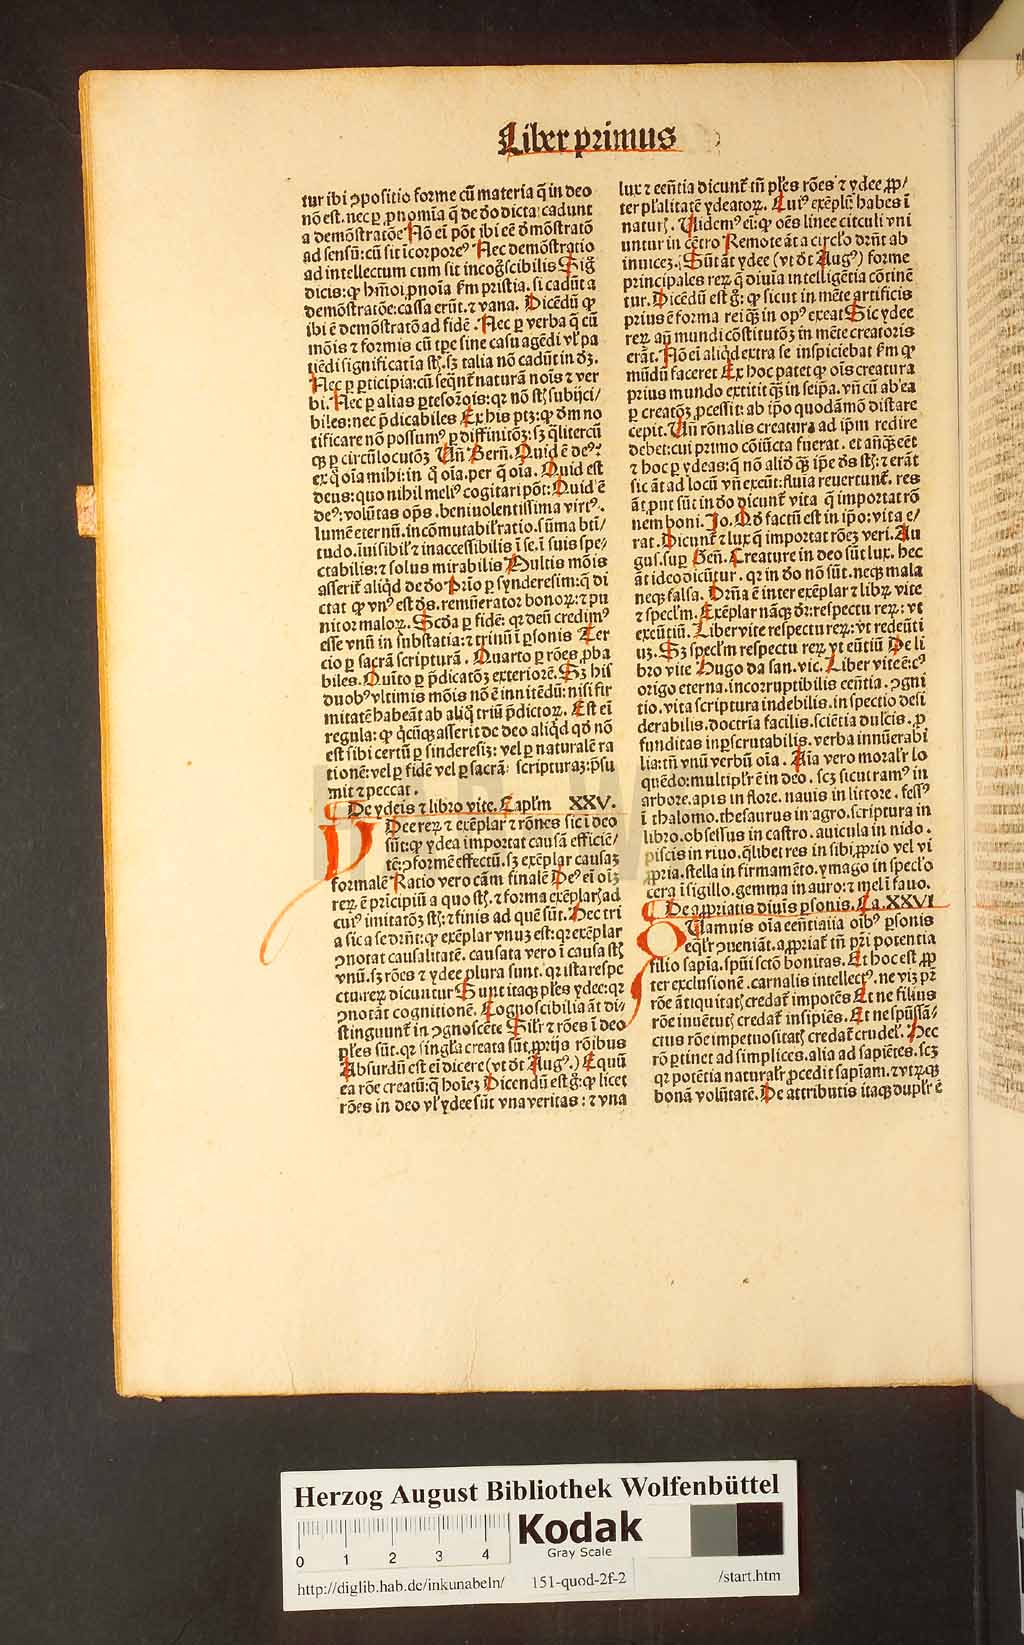 Liber primus
tur ibi ꝯpositio forme cū materia q̄ in deo
nō est. nec ꝑ ꝓnomīa q̄ de deo dicta cadunt
a demōstratōe Nō ei̅ pōt ibi eē demōstratō
ad sensū: cū sit īcorporeꝰ Nec demōstratio
ad intellectum cum sit incog̅scibilis Sig̅
dicis: ꝙ hm̄oi ꝓnoīa ẜm pristia. si cadūt a
demōstratōe: cassa erūt. ⁊ vana. Dicēdū ꝙ
ibi ē demōstratō ad fidē. Nec ꝑ verba q̄ cū
mōis ⁊ formis cū tꝑe sine casu agēdi vl̓ pa
tiēdi significatīa st̄. sꝫ talia nō cadūt in dꝫ.
Nec ꝑ ꝑticipia: cū seq̄nt̄ naturā nois ⁊ ver
bi. Nec ꝑ alias ꝑtes orōis: qꝛ nō st̄ subijci/
biles: nec p̄dicabiles Ex his ptꝫ: ꝙ dm̄ no
tificare nō possumꝰ ꝑ diffinitōꝫ: sꝫ q̄litercū
qꝫ ꝑ circūlocutōꝫ Vn̄ Bern̄. Quid ē deꝰ:
ex q̊ oīa mihi: in q̊ oīa. per q̄ oīa. Quid est
deus: quo nihil meliꝰ cogitari pōt: Quid ē
deꝰ: volūtas op̄s. beniuolentissima virtꝰ.
lumē eternū. incōmutabil̓ ratio. sūma bti/
tudo. īuisibil̓ ⁊ inaccessibilis ī se. ī suis spe/
ctabilis: ⁊ solus mirabilis Multis mōis
asserit̄ aliq̇d de deo Prīo ꝑ synderesim: q̄ di
ctat ꝙ vnꝰ est ds̄. remūerator bonoꝝ: ⁊ pu
nitor maloꝝ. Scd̄a ꝑ fidē: qꝛ deū credimꝰ
esse vnū in substātia: ⁊ trinū ī ꝑsonis Ter
cio ꝑ sacrā scripturā. Quarto ꝑ rōes ꝓba
biles. Quīto ꝑ p̄dicatōꝫ exteriorē. Sꝫ his
duobꝰ vltimis mōis nō ē innitēdū: nisi fir
mitatē habeāt ab aliq̊ triū p̄dictoꝝ. Est ei̅
regula: ꝙ q̇cūqꝫ asserit de deo aliq̇d qd̄ nō
est sibi certū ꝑ sinderesiꝫ: vel ꝑ naturalē ra
tionē: vel ꝑ fidē vel ꝑ sacrā scripturaꝫ: p̄su
mit ⁊ peccat.
De ydeis ⁊ libro vite. Capl̓m XXV.
Dee reꝝ ⁊ exēplar ⁊ rōnes sic ī deo
sūt: ꝙ ydea importat causā efficiē/
tē: ꝯ formē effectū. sꝫ exēplar causaꝫ
formalē Ratio vero cām finalē Deꝰ ei̅ oīꝫ
reꝝ ē pricipiū a quo st̄. ⁊ forma exēplar̓: ad
cuiꝰ imitatōꝫ st̄: ⁊ finis ad quē sūt. Hec tri
a sic a se dr̄nt: ꝙ exēplar vnuꝫ est: qꝛ exēplar
ꝯnotat causalitatē. causata vero ī causa st̄
vnū. sꝫ rōes ⁊ ydee plura sunt. qꝛ ista respe
ctu: reꝝ dicuntur Sunt itaqꝫ pl̓es ydee: qꝛ
ꝯnotāt cognitionē. Cognoscibilia āt di/
stinguunt̄ in ꝯgnoscēte Silr̓ ⁊ rōes ī deo
pl̓es sūt. qꝛ singl̓a creata sūt ꝓprijs rōibus
Absurdū est ei̅ dicere (vt dt̄ Augꝰ.) Equū
ea rōe creatū: q̄ hoīeꝫ Dicendū est g̊: ꝙ licet
rōes in deo vl̓ ydee sūt vna veritas: ⁊ vna
lux ⁊ eēntia dicunt̄ tn̄ pl̓es rōes ⁊ ydee ꝓp/
ter pl̓alitatē ydeatoꝝ. Cuiꝰ exēplū habes ī
natur̓. Videmꝰ ei̅: ꝙ oēs linee circuli vni
untur in cētro Remote āt a circl̓o dr̄nt ab
inuiceꝫ. Sūt āt ydee (vt dt̄ Augꝰ) forme
principales reꝝ q̄ diuīa intelligētia cōtinē
tur. Dicēdū est g̊: ꝙ sicut in mēte artificis
prius ē forma rei qꝫ in opꝰ exeat Sic ydee
reꝝ an̄ mundi cōstitutōꝫ in mēte creatoris
erāt. Nō ei̅ aliq̇d extra se inspiciebat ẜm ꝙ
mūdū faceret Ex hoc patet ꝙ oīs creatura
prius mundo extitit qꝫ in seip̄a. vn̄ cū ab ea
ꝑ creatōꝫ ꝓcessit: ab ip̄o quodāmō distare
cepit. Vn̄ rōnalis creatura ad ip̄m redire
debet: cui primo cōiūcta fuerat. et añqꝫ eēt
⁊ hoc ꝑ ydeas: q̄ nō aliđ qꝫ ip̄e ds̄ st̄: ⁊ erāt
sic āt ad locū vn̄ exeūt: fluīa reuertunt̄. res
āt put sūt in deo dicunt̄ vita q̄ importat rō
nem boni. Jo. Qd̄ factū est in ip̄o: vita e/
rat. Dicunt̄ ⁊ lux q̄ importat rōeꝫ veri. Au
gus. suꝑ Gen̄. Creature in deo sūt lux. hec
āt ideo dicūtur. qꝛ in deo nō sūt. neqꝫ mala
neqꝫ falsa. Drn̄a ē inter exēplar ⁊ libꝝ vite
⁊ specl̓m. Exēplar nāqꝫ dr̄: respectu reꝝ: vt
exeūtiū. Liber vite respectu reꝝ: vt redeūti
uꝫ. Sꝫ specl̓m respectu reꝝ vt eūtiū De li
bro vite Hugo da san. vic. Liber vite ē: cꝰ
origo eterna. incorruptibilis eēntia. ꝯgni
tio. vita scriptura indebilis. inspectio desi
derabilis. doctrīa facilis. sciētia dulcis. ꝓ
funditas inꝑscrutabilis. verba innūerabi
lia: tn̄ vnū verbū oīa. Alia vero moralr̓ lo
quēdo: multiplr̓ ē in deo. scꝫ sicut ramꝰ in
arbore. apis in flore. nauis in littore. fessꝰ
ī thalomo. thesaurus in agro. scriptura in
libro. obsessus in castro. auicula in nido.
piscis in riuo. q̄libet res in sibi ꝓprio vel vi
ꝓpria. stella in firmamēto. ymago in specl̓o
cera ī sigillo. gemma in auro: ⁊ mel ī fauo.
De aꝓpriatis diuis ꝑsonis. Ca. XXVI
QUamuis oīa eēntialia oibꝰ ꝑsonis
eq̄lr̓ ꝯueniāt. aꝓpriat̄ tn̄ pr̄i potentia
filio sapīa. spūi sctō bonitas. Et hoc est ꝓp
ter exclusionē. carnalis intellectꝰ. ne viꝫ pr̄
rōe ātiquitat̓ credat̄ impotēs Et ne filius
rōe inuētut̓ credat̄ insipiēs. Et ne spūssā/
ctus rōe impetuositat̓ credat̄ crudel̓. Hec
rō ꝑtinet ad simplices. alia ad sapiētes. scꝫ
qꝛ potētia naturalr̓ ꝓcedit sapīam. ⁊ vtꝝqꝫ
bonā volūtatē. De attributis itaqꝫ duplr̓ ē
Herzog August Bibliothek Wolfenbüttel
0 1 2 3 4
Kodak
Gray Scale
http://diglib.hab.de/inkunabeln/ 151-quod-2f-2 /start.htm